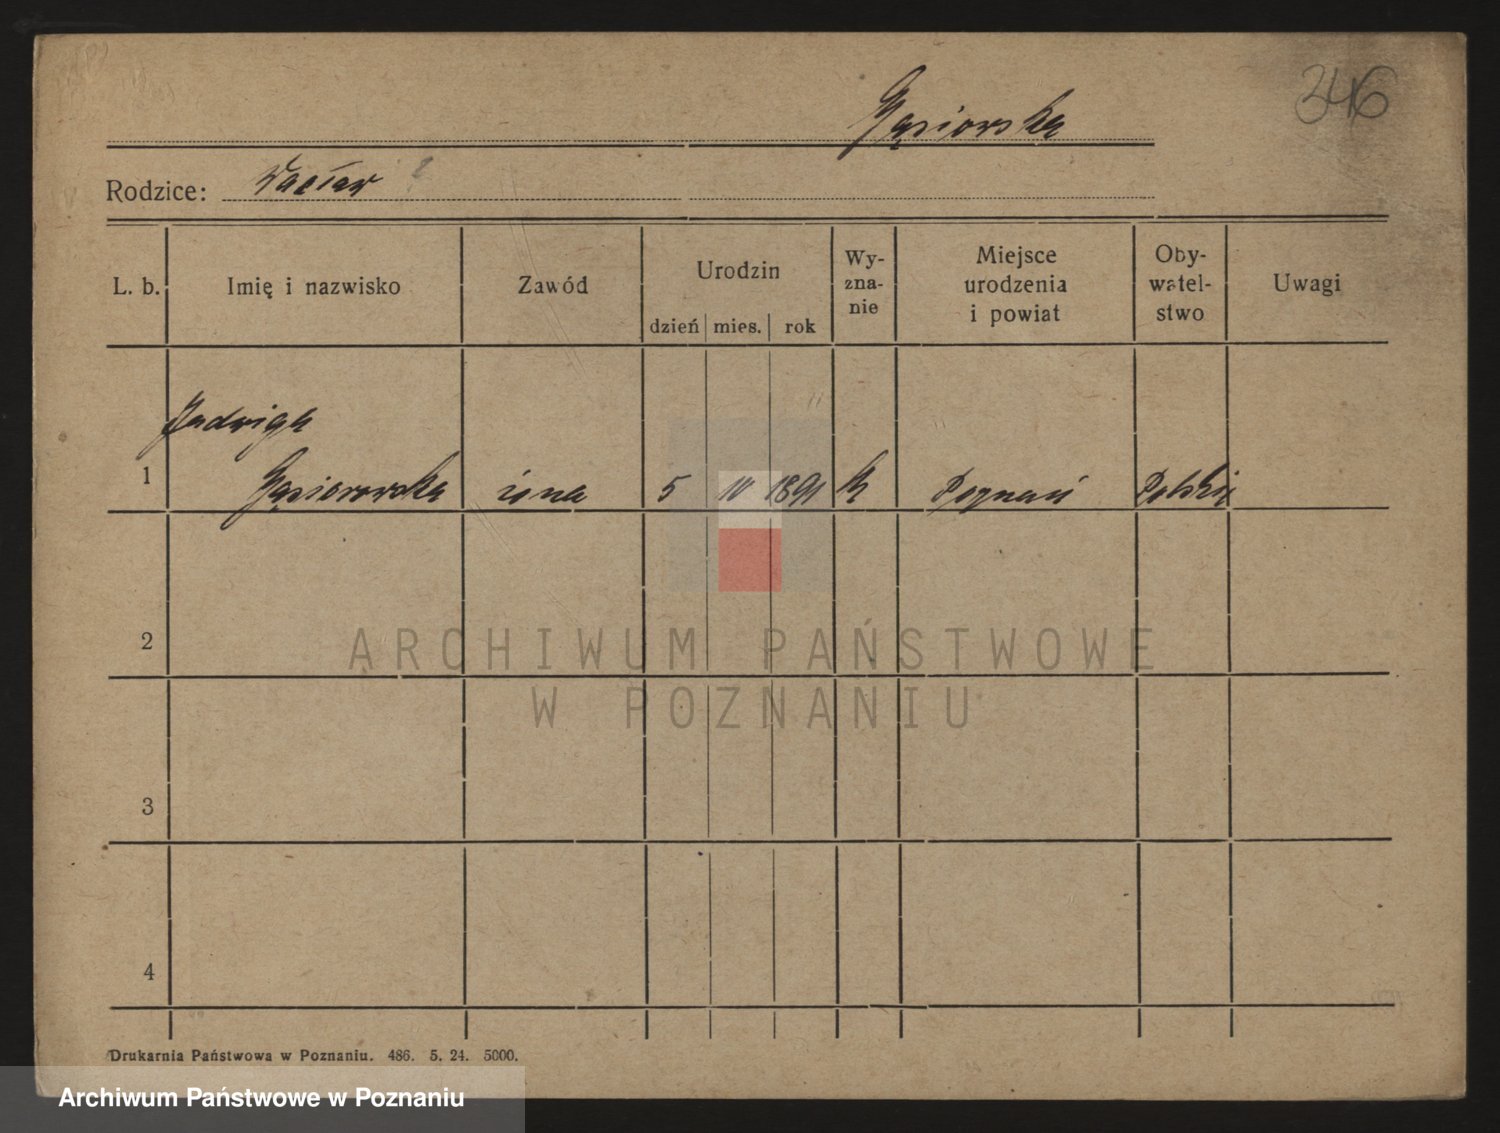 346
Gąsiorska
Rodzice: Wacław ?
L. b. Imię i nazwisko Zawód Urodzin Wy-zna-nie Miejsce urodzenia i powiat Oby-watel-stwo Uwagi
dzień mies. rok
Jadwiga
1 Gąsiorowska żona 5 10 1891 K Poznań Polskie
2
3
4
ARCHIWUM PAŃSTWOWE
W POZNANIU
Drukarnia Państwowa w Poznaniu. 486. 5. 24. 5000.
Archiwum Państwowe w Poznaniu